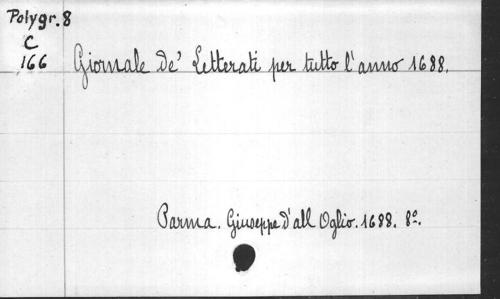 Polygr. 8
C
166
Giornale de' Letterati per tutto l'anno 1688.
Parma. Giuseppe d'all Oglio. 1688. 8°.